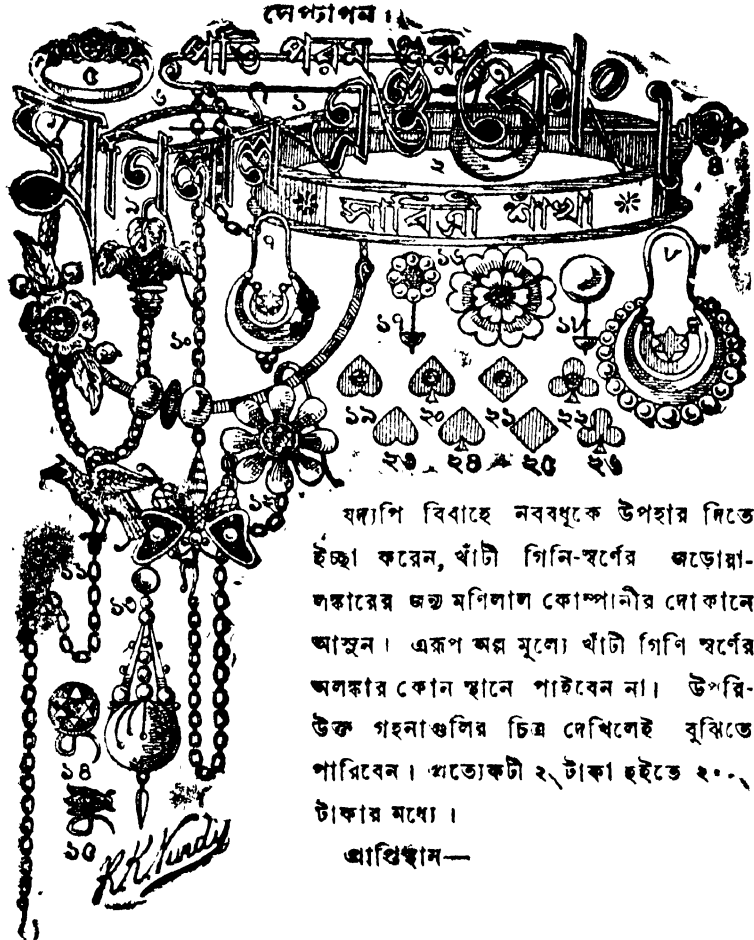 পতি পরম গুরু
মণিলাল এণ্ড কোং
সাবিত্রী শাঁখা
৫
৬
১
২
৭
১৬
৮
১৭
১৮
১০
১৯ ২০ ২১ ২২
২৩ ২৪ ২৫ ২৬
১২
১১
১৩
১৪
১৫
যদ্যপি বিবাহে নববধূকে উপহার দিতে
ইচ্ছা করেন, খাঁটী গিনি-স্বর্ণের জড়োয়া-
লঙ্কারের জন্য মণিলাল কোম্পানীর দোকানে
আসুন। এরূপ অল্প মূল্যে খাঁটী গিণি স্বর্ণের
অলঙ্কার কোন স্থানে পাইবেন না। উপরি-
উক্ত গহনাগুলির চিত্র দেখিলেই বুঝিতে
পারিবেন। প্রত্যেকটী ২৲ টাকা হইতে ২০০৲
টাকার মধ্যে।
প্রাপ্তিস্থান—
R.K. Nundy